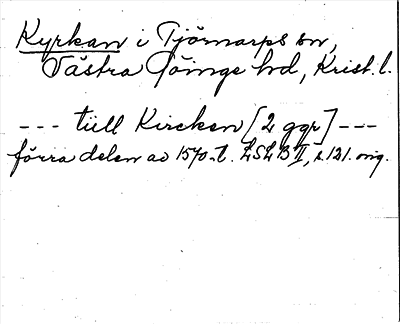 Kyrkan i Tjörnarps sn,
Västra Göinge hd, Krist. l.
--- tüll Kircken [2 ggr] ---
förra delen av 1570-t. LSLB II, s. 121. orig.